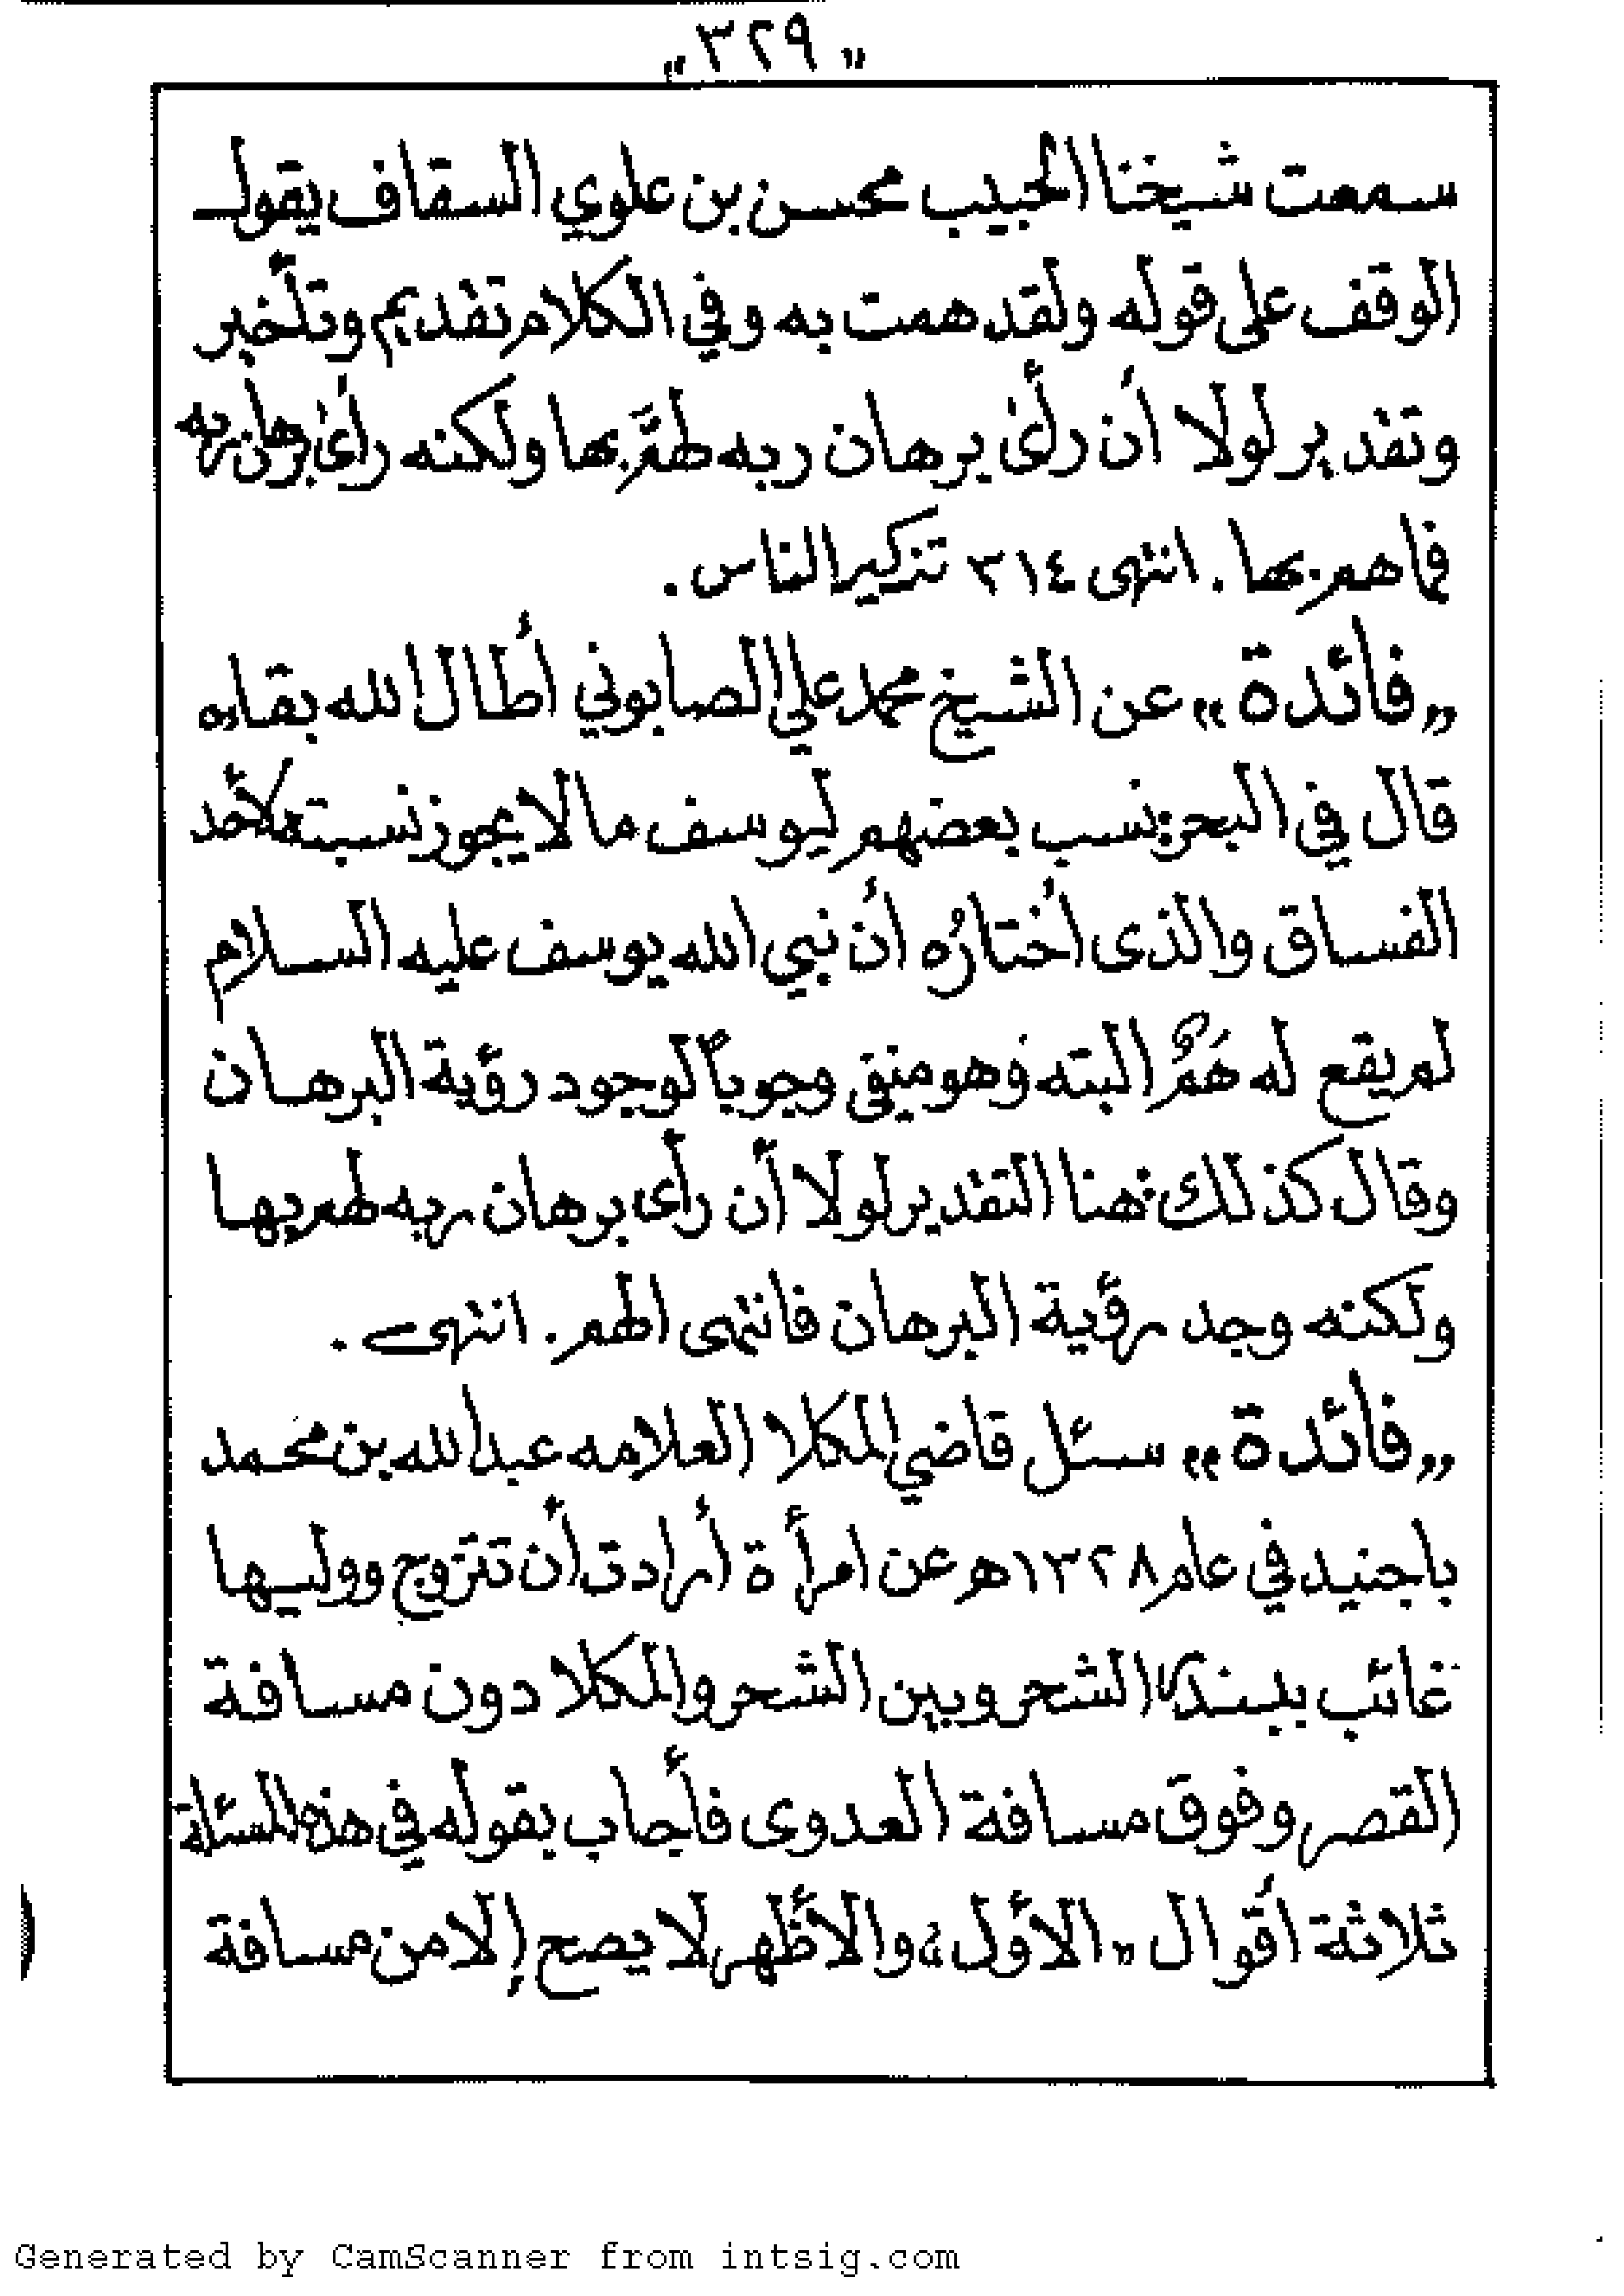 „ ٣٢٩ „
سمعت شيخنا الحبيب محسن بن علوي السقاف يقول
الوقف على قوله ولقد همت به وفي الكلام تقديم وتأخير
وتقدير لولا أن رأى برهان ربه لهَمَّ بها ولكنه رأى برهان ربه
فما هم بها . انتهى ٣١٤ تذكير الناس .
„ فائدة „ عن الشيخ محمد علي الصابوني أطال الله بقاءه
قال في البحر: نسب بعضهم ليوسف ما لا يجوز نسبته لأحد
الفساق والذى أختارُه أن نبي الله يوسف عليه السلام
لم يقع له هَمٌّ البته وهو منفي وجوباً لوجود رؤية البرهان
وقال كذلك: هنا التقدير لولا أن رأى برهان ربه لهم بها
ولكنه وجد رؤية البرهان فانتهى الهم . انتهى .
„ فائدة „ سئل قاضي المكلا العلامه عبدالله بن محمد
باجنيد في عام ١٣٢٨هـ عن امرأة أرادت أن تتزوج ووليها
غائب ببندر الشحر وبين الشحر والمكلا دون مسافة
القصر وفوق مسافة العدوى فأجاب بقوله في هذه المسئلة
ثلاثة أقوال „ الأول „ والأظهر لا يصح إلا من مسافة
Generated by CamScanner from intsig.com